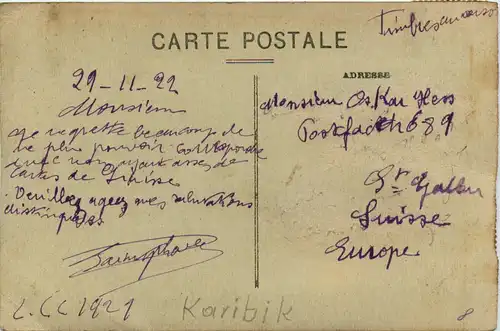 Timbres au verso
CARTE POSTALE
ADRESSE
29-11-22
Monsieur
Je regrette beaucoup de
ne plus pouvoir correspondre
avec vous, ayant assez de
cartes de Suisse
Veuillez agréez mes salutations
distinguées
Monsieur Oskar Hess
Postfach 689
St Gallen
Suisse
Europe
1921
Karibik
8